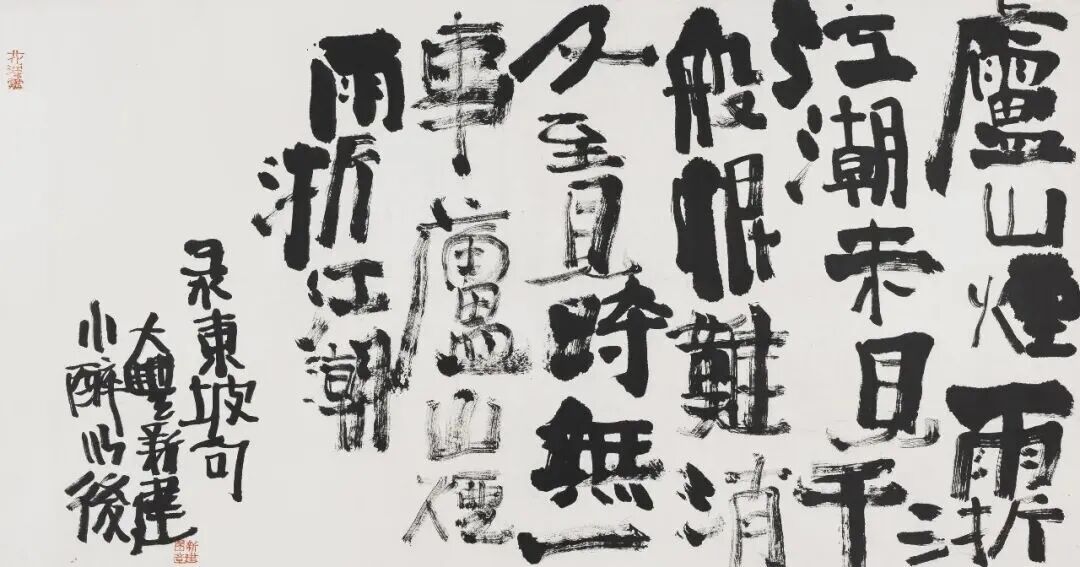 廬山煙雨浙
江潮未見千
般恨難消
及至見時無一
事廬山煙
雨浙江潮
录東坡句
大豐新建
小醉以後